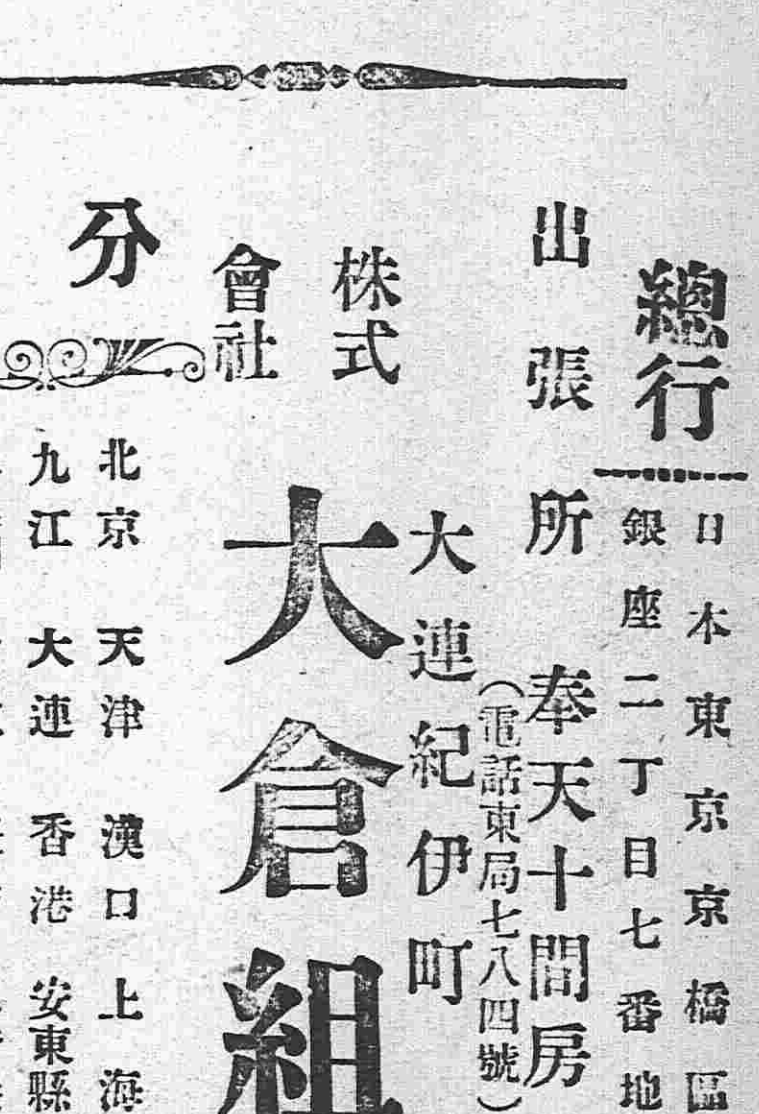 總行
日本東京京橋區
銀座二丁目七番地
出張所 奉天十間房
(電話東局七八四號)
大連紀伊町
株式
會社
大倉組
分
北京 天津 漢口 上海
九江 大連 香港 安東縣